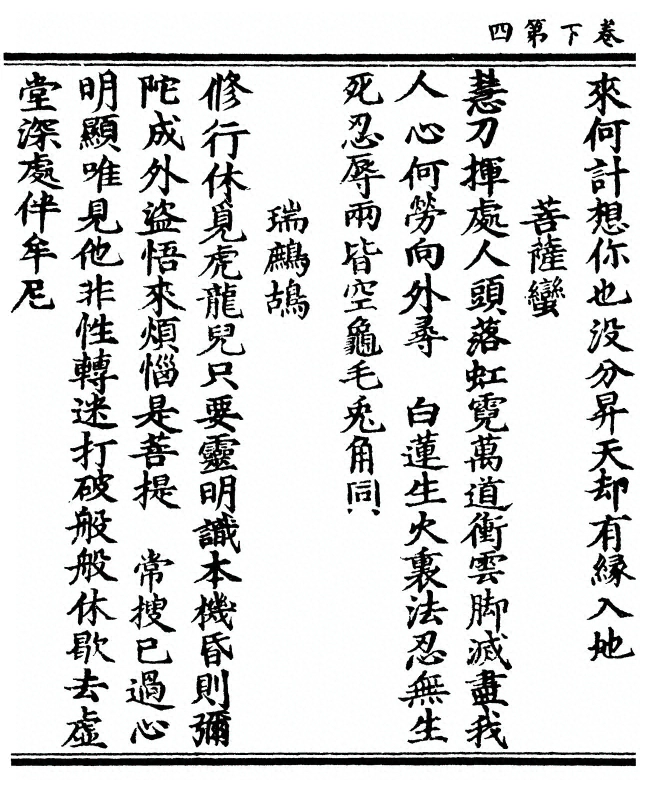 卷下第四
來何計想你也没分昇天却有縁入地
菩薩蠻
慧刀揮處人頭落虹霓萬道衝雲脚滅盡我
人心何勞向外尋　白蓮生火裏法忍無生
死忍辱兩皆空龜毛兎角同
瑞鷓鴣
修行休覓虎龍兒只要靈明識本機昏則彌
陀成外盜悟來煩惱是菩提　常搜已過心
明顯唯見他非性轉迷打破般般休歇去虛
堂深處伴牟尼